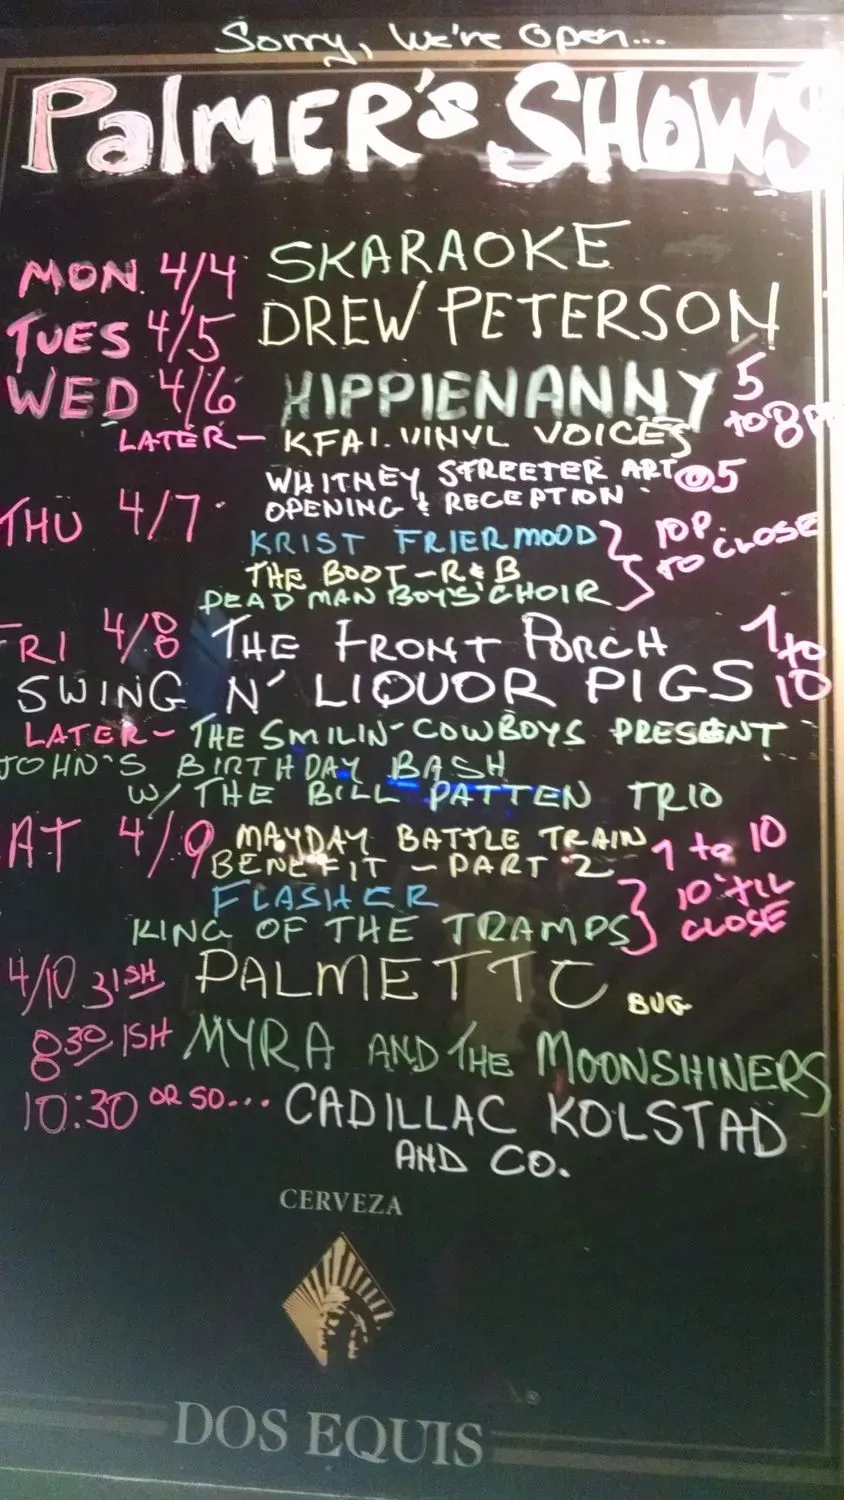 Sorry, We're Open...
PalmER's SHOWS
MON. 4/4 SKARAOKE
TUES 4/5 DREW PETERSON
WED 4/6 HIPPIENANNY 5 to 8 P
LATER- KFAI. VINYL VOICES
THU 4/7 WHITNEY STREETER ART @5
OPENING & RECEPTION
KRIST FRIERMOOD } 10P. TO CLOSE
THE BOOT-R&B
DEAD MAN BOY'S CHOIR
FRI 4/8 THE FRONT PORCH 7 to 10
SWING N' LIQUOR PIGS
LATER- THE SMILIN-COWBOYS PRESENT
JOHN'S BIRTHDAY BASH
W/ THE BILL PATTEN TRIO
AT 4/9 MAYDAY BATTLE TRAIN 7 to 10
BENEFIT - PART 2
FLASHER } 10 'TIL CLOSE
KING OF THE TRAMPS
4/10 3ISH PALMETTO BUG
8:30 ISH MYRA AND THE MOONSHINERS
10:30 OR SO... CADILLAC KOLSTAD
AND CO.
CERVEZA
DOS EQUIS